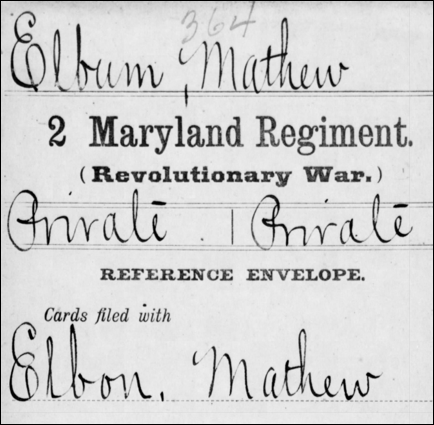 364
Elbum, Mathew
2 Maryland Regiment.
(Revolutionary War.)
Private | Private
REFERENCE ENVELOPE.
Cards filed with
Elbon, Mathew